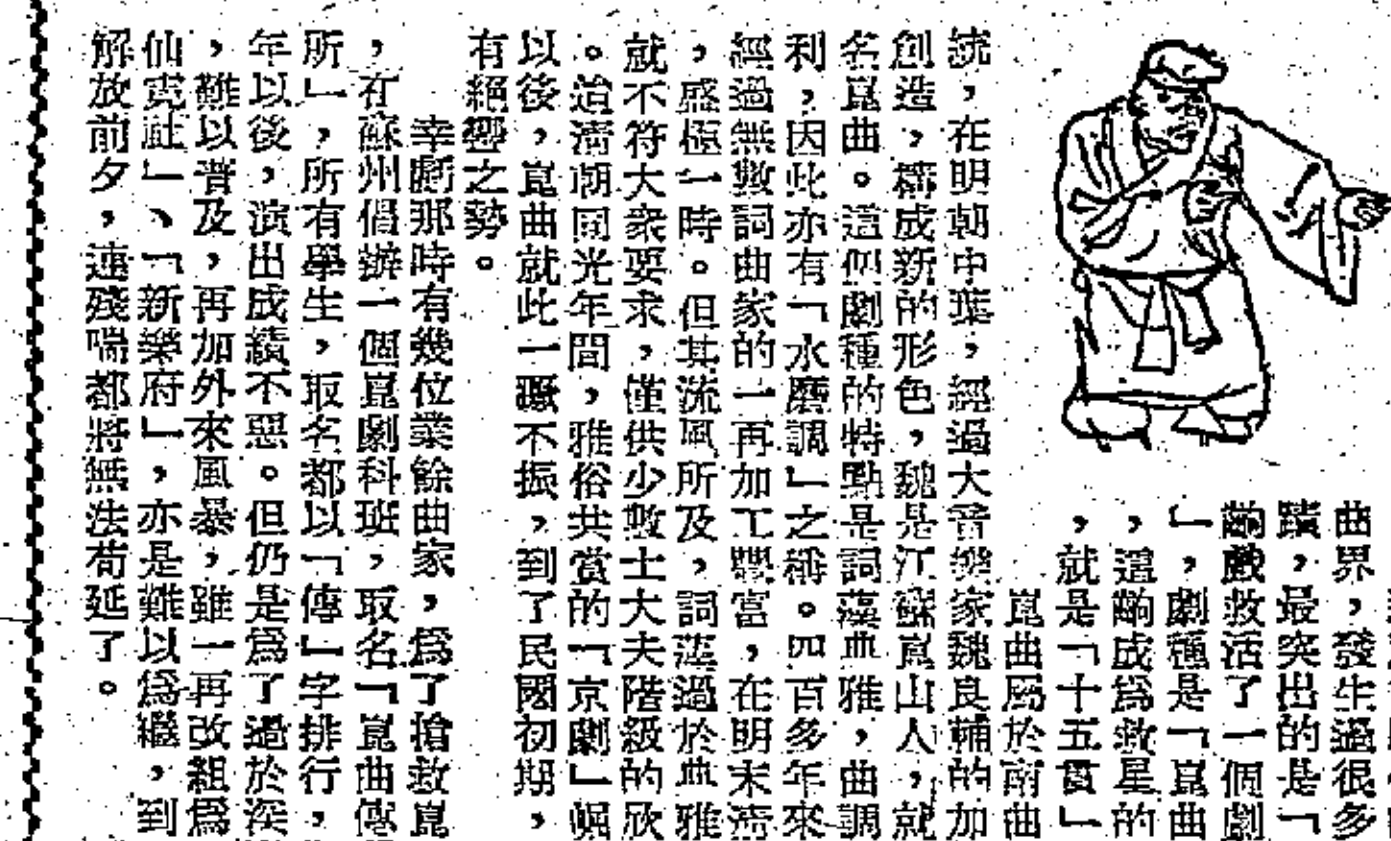 曲界，發生過很多
蹟，最突出的是「
齣戲救活了一個劇
」，劇種是「崑曲
，這齣成爲救星的
，就是「十五貫」
崑曲屬於南曲
統，在明朝中葉，經過大音樂家魏良輔的加
創造，構成新的形色，魏是江蘇崑山人，就
名崑曲。這個劇種的特點是詞藻典雅，曲調
利，因此亦有「水磨調」之稱。四百多年來
經過無數詞曲家的一再加工豐富，在明末淸
，盛極一時。但其流風所及，詞藻過於典雅
就不符大衆要求，僅供少數士大夫階級的欣
。迨淸朝同光年間，雅俗共賞的「京劇」崛
以後，崑曲就此一蹶不振，到了民國初期，
有絕響之勢。
幸虧那時有幾位業餘曲家，爲了搶救崑
，在蘇州倡辦一個崑劇科班，取名「崑曲傳
所」，所有學生，取名都以「傳」字排行，
年以後，演出成績不惡。但仍是爲了過於深
，難以普及，再加外來風暴，雖一再改組爲
仙霓社」、「新樂府」，亦是難以爲繼，到
解放前夕，連殘喘都將無法苟延了。